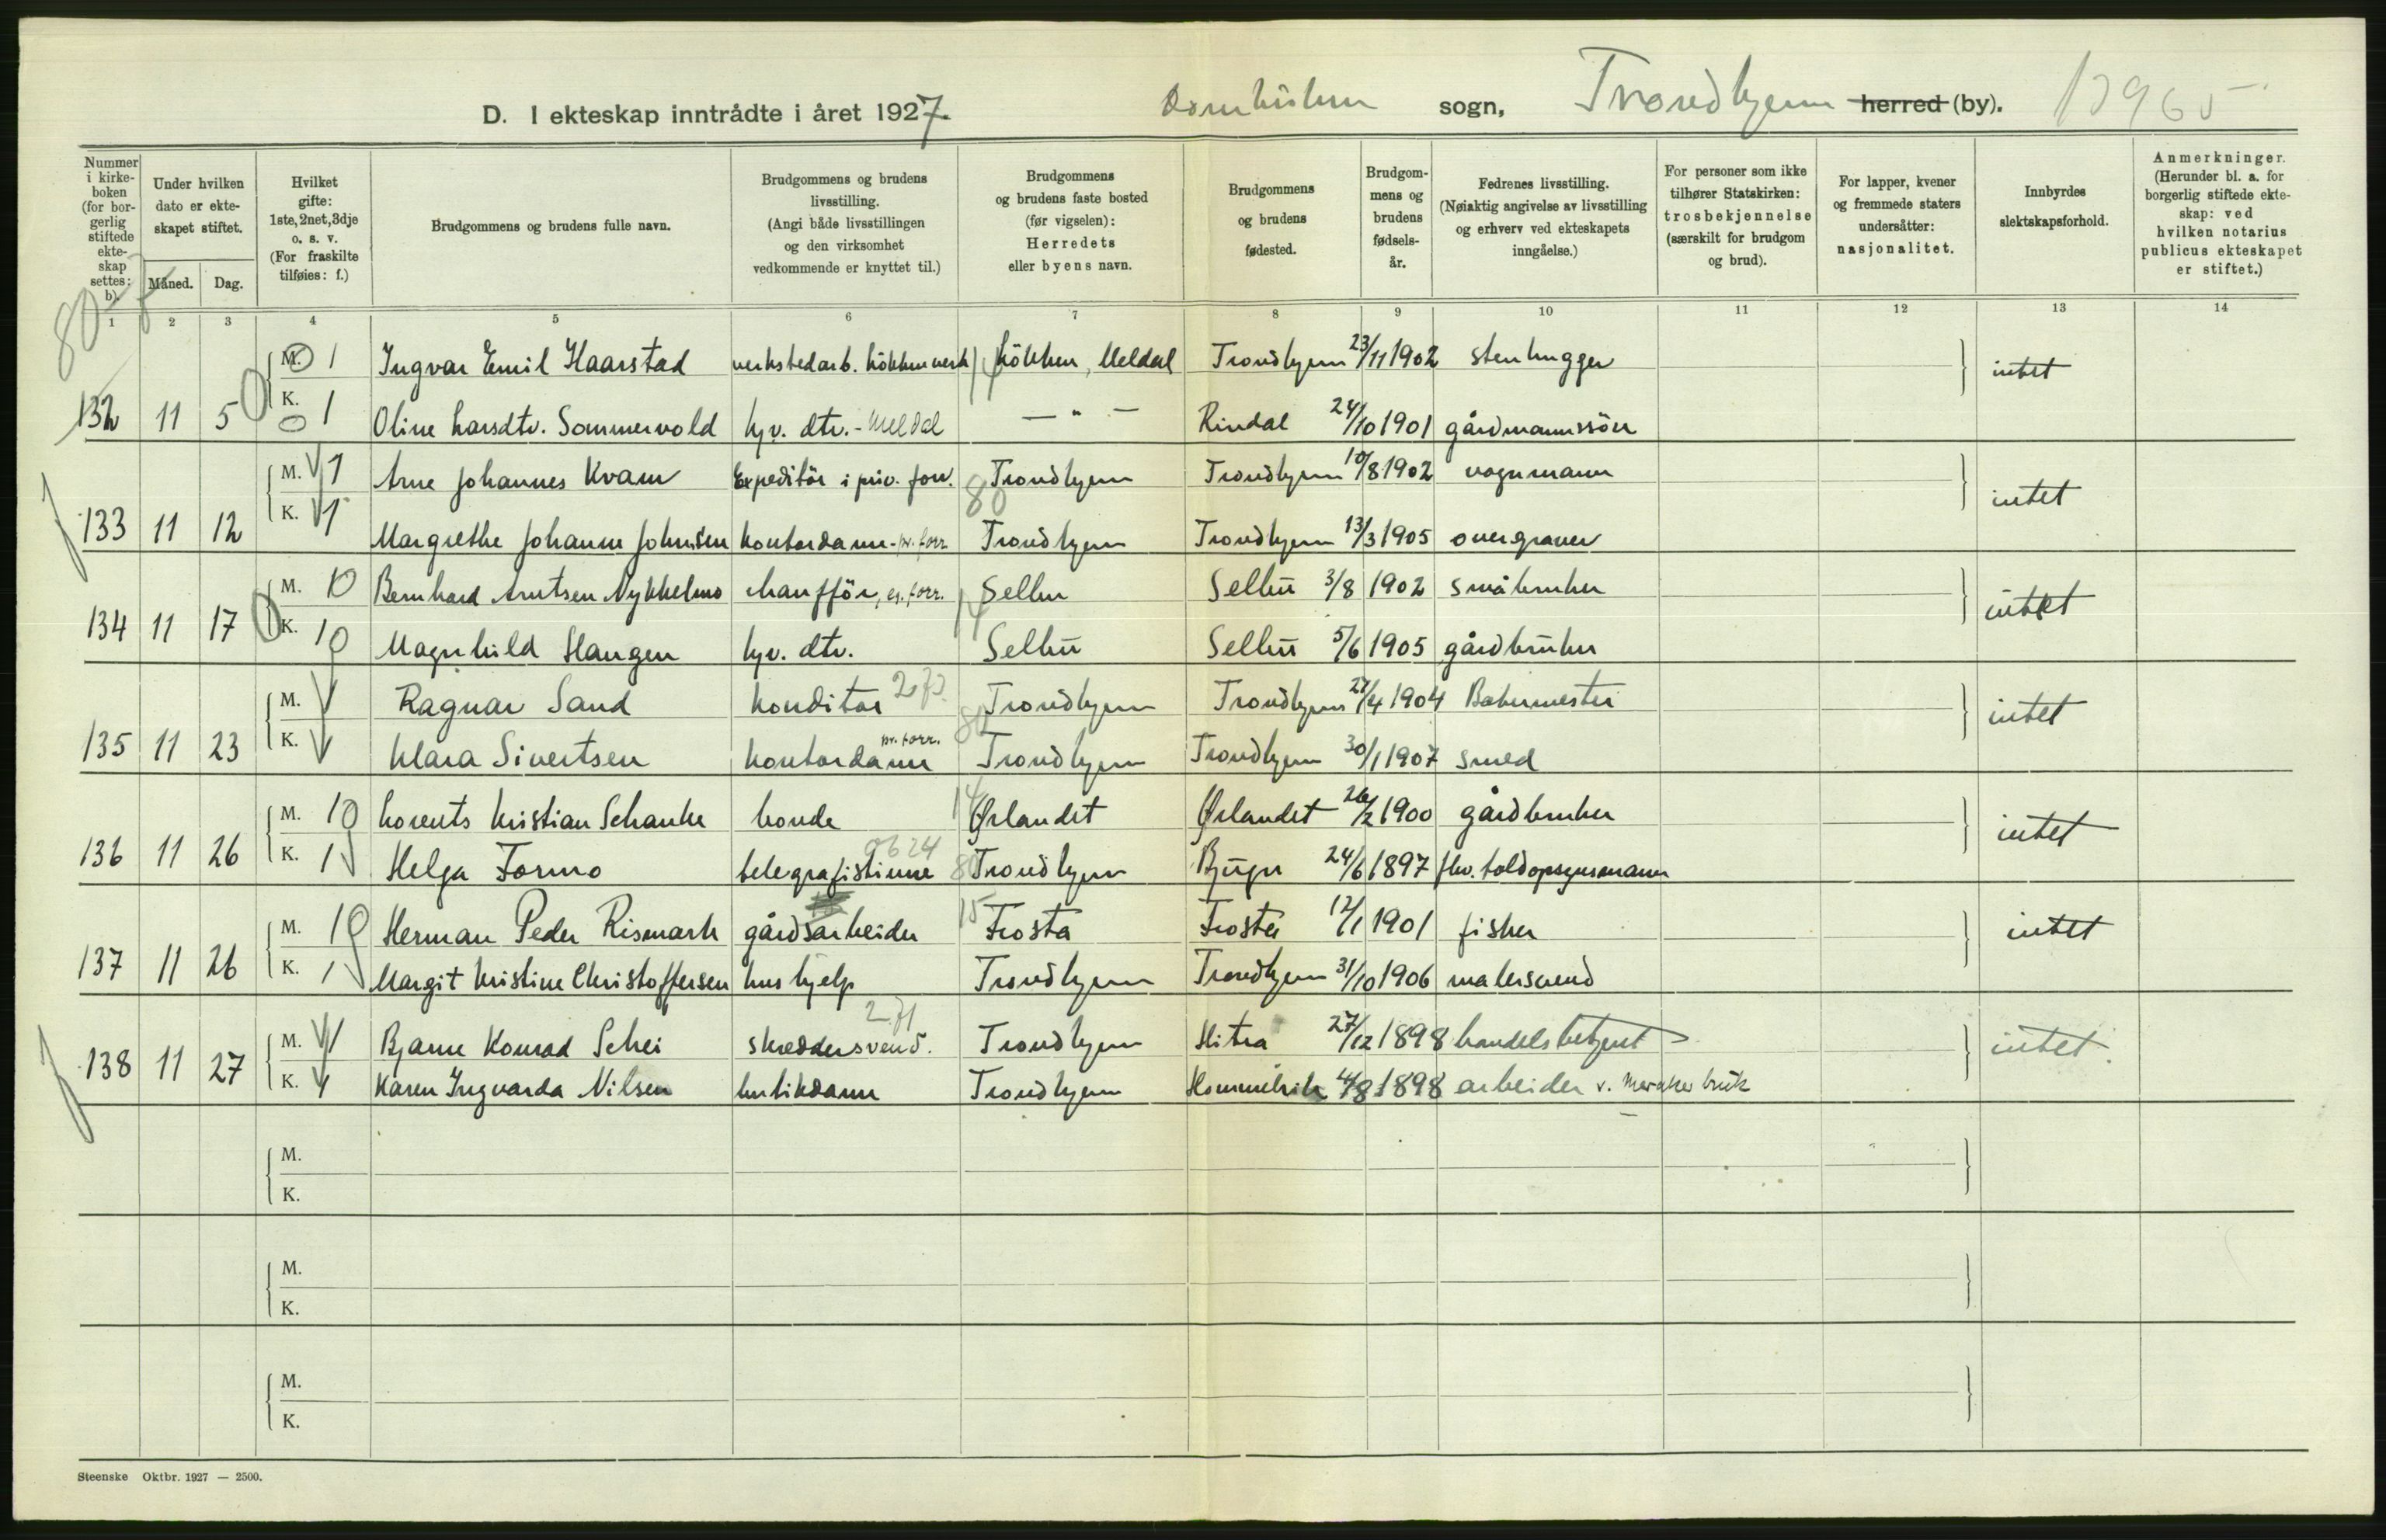 D. I ekteskap inntrådte i året 1927. Domkirken sogn, Trondhjem herred (by).
Nummer i kirkeboken (for borgerlig stiftede ekteskap settes: b).
Under hvilken dato er ekteskapet stiftet.
Måned. Dag.
Hvilket gifte: 1ste, 2net, 3dje o. s. v. (For fraskilte tilføies: f.)
Brudgommens og brudens fulle navn.
Brudgommens og brudens livsstilling. (Angi både livsstillingen og den virksomhet vedkommende er knyttet til.)
Brudgommens og brudens faste bosted (før vigselen): Herredets eller byens navn.
Brudgommens og brudens fødested.
Brudgommens og brudens fødselsår.
Fedrenes livsstilling. (Nøiaktig angivelse av livsstilling og erhverv ved ekteskapets inngåelse.)
For personer som ikke tilhører Statskirken: trosbekjennelse (særskilt for brudgom og brud).
For lapper, kvener og fremmede staters undersåtter: nasjonalitet.
Innbyrdes slektskapsforhold.
Anmerkninger. (Herunder bl. a. for borgerlig stiftede ekteskap: ved hvilken notarius publicus ekteskapet er stiftet.)
1 2 3 4 5 6 7 8 9 10 11 12 13 14
M. 1 Ingvar Emil Haarstad verkstedarb. Løkken verk Løkken, Meldal Trondhjem 23/11 1902 stenhugger intet
132 11 5 K. 1 Oline Larsdtr. Sommervold hjv. dtr. - Meldal — " — Rindal 24/10 1901 gårdmannssön
M. 1 Arne Johannes Kvam Expeditör i priv. forr. Trondhjem Trondhjem 10/8 1902 vognmann intet
133 11 12 K. 1 Margrethe Johanne Johnsen kontordame - pr. forr. Trondhjem Trondhjem 13/3 1905 overgraver
M. 1 Bernhard Arntsen Nykkelmo chafför, eg. forr. Selbu Selbu 3/8 1902 småbruker intet
134 11 17 K. 1 Magnhild Haugen hjv. dtr. Selbu Selbu 5/6 1905 gårdbruker
M. 1 Ragnar Sand konditor Trondhjem Trondhjem 27/4 1904 Bakermester intet
135 11 23 K. 1 Klara Sivertsen kontordame pr. forr. Trondhjem Trondhjem 30/1 1907 smed
M. 1 Lorents Kristian Schanke bonde Ørlandet Ørlandet 26/2 1900 gårdbruker intet
136 11 26 K. 1 Helga Formo telegrafistinne Trondhjem Bjugn 24/6 1897 fhv. toldopsynsmann
M. 1 Herman Peder Rismark gårdsarbeider Frosta Frosta 12/1 1901 fisker intet
137 11 26 K. 1 Margit Kristine Christoffersen hushjelp Trondhjem Trondhjem 31/10 1906 malersvend
M. 1 Bjarne Konrad Schei skreddersvend. Trondhjem Hitra 27/12 1898 handelsbetjent intet.
138 11 27 K. 1 Karen Ingvarda Nilsen butikdame Trondhjem Hommelvik 4/8 1898 arbeider v. Meraker bruk
M.
K.
M.
K.
M.
K.
Steenske Oktbr. 1927 — 2500.